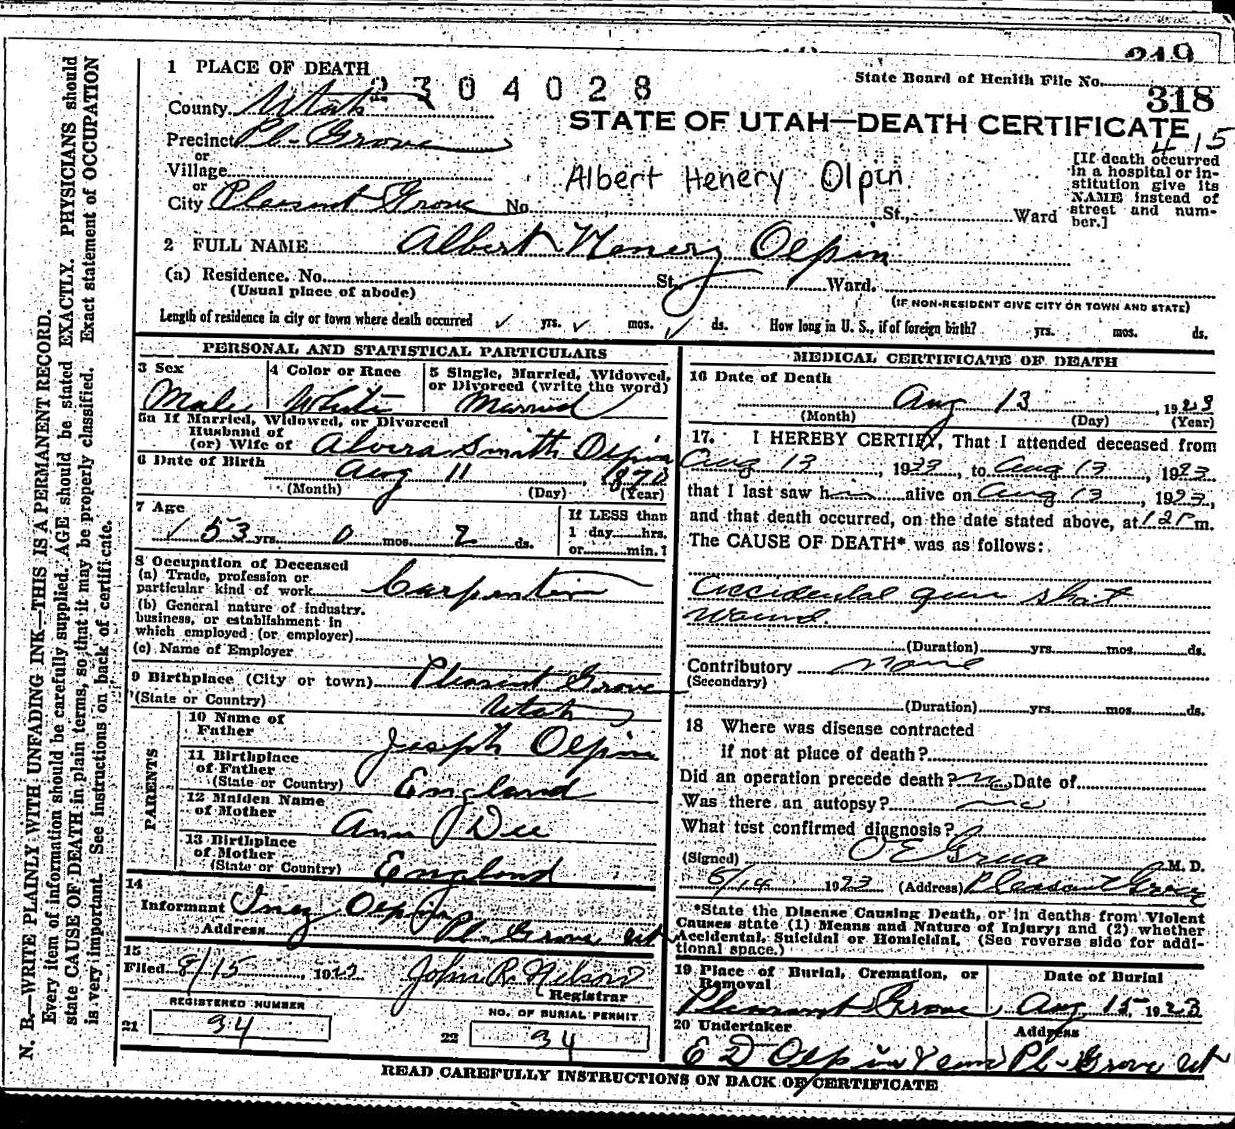 219
1 PLACE OF DEATH
2304028
State Board of Health File No.
318
County Utah
STATE OF UTAH—DEATH CERTIFICATE
415
Precinct Pl- Grove
or
Village
or
City Pleasant Grove No. St., Ward
Albert Henery Olpin
[If death occurred
in a hospital or in-
stitution give its
NAME instead of
street and num-
ber.]
2 FULL NAME Albert Henery Olpin
(a) Residence. No. St., Ward.
(Usual place of abode)
(IF NON-RESIDENT GIVE CITY OR TOWN AND STATE)
Length of residence in city or town where death occurred ✓ yrs. ✓ mos. ✓ ds. How long in U. S., if of foreign birth? yrs. mos. ds.
PERSONAL AND STATISTICAL PARTICULARS
3 Sex
Male
4 Color or Race
White
5 Single, Married, Widowed,
or Divorced (write the word)
Married
5a If Married, Widowed, or Divorced
Husband of
(or) Wife of Alvira Smith Olpin
6 Date of Birth
Aug 11, 1870
(Month) (Day) (Year)
7 Age
53 yrs. 0 mos. 2 ds.
If LESS than
1 day hrs.
or min.?
8 Occupation of Deceased
(a) Trade, profession or
particular kind of work Carpenter
(b) General nature of industry,
business, or establishment in
which employed (or employer)
(c) Name of Employer
9 Birthplace (City or town) Pleasant Grove
(State or Country) Utah
PARENTS
10 Name of
Father Joseph Olpin
11 Birthplace
of Father
(State or Country) England
12 Maiden Name
of Mother Ann Dee
13 Birthplace
of Mother
(State or Country) England
14
Informant Inez Olpin
Address Pl. Grove Ut
15
Filed 8/15, 19 John R. Nelson
Registrar
REGISTERED NUMBER
21 34
NO. OF BURIAL PERMIT
22 34
MEDICAL CERTIFICATE OF DEATH
16 Date of Death
Aug 13, 1923
(Month) (Day) (Year)
17. I HEREBY CERTIFY, That I attended deceased from
Aug 13, 19 to Aug 13, 1923
that I last saw him alive on Aug 13, 1923,
and that death occurred, on the date stated above, at m.
The CAUSE OF DEATH* was as follows:
accidental gun shot
wound.
(Duration) yrs. mos. ds.
Contributory none
(Secondary)
(Duration) yrs. mos. ds.
18 Where was disease contracted
if not at place of death?
Did an operation precede death? no Date of
Was there an autopsy? no
What test confirmed diagnosis?
(Signed) O E Grua M. D.
8/14 1923 (Address) Pleasant Grove
*State the Disease Causing Death, or in deaths from Violent
Causes state (1) Means and Nature of Injury; and (2) whether
Accidental, Suicidal or Homicidal. (See reverse side for addi-
tional space.)
19 Place of Burial, Cremation, or
Removal
Pleasant Grove
Date of Burial
Aug. 15, 1923
20 Undertaker
E D Olpin & Sons
Address
Pl- Grove Ut
READ CAREFULLY INSTRUCTIONS ON BACK OF CERTIFICATE
N. B.—WRITE PLAINLY WITH UNFADING INK—THIS IS A PERMANENT RECORD.
Every item of information should be carefully supplied. AGE should be stated EXACTLY. PHYSICIANS should
state CAUSE OF DEATH in plain terms, so that it may be properly classified. Exact statement of OCCUPATION
is very important. See instructions on back of certificate.